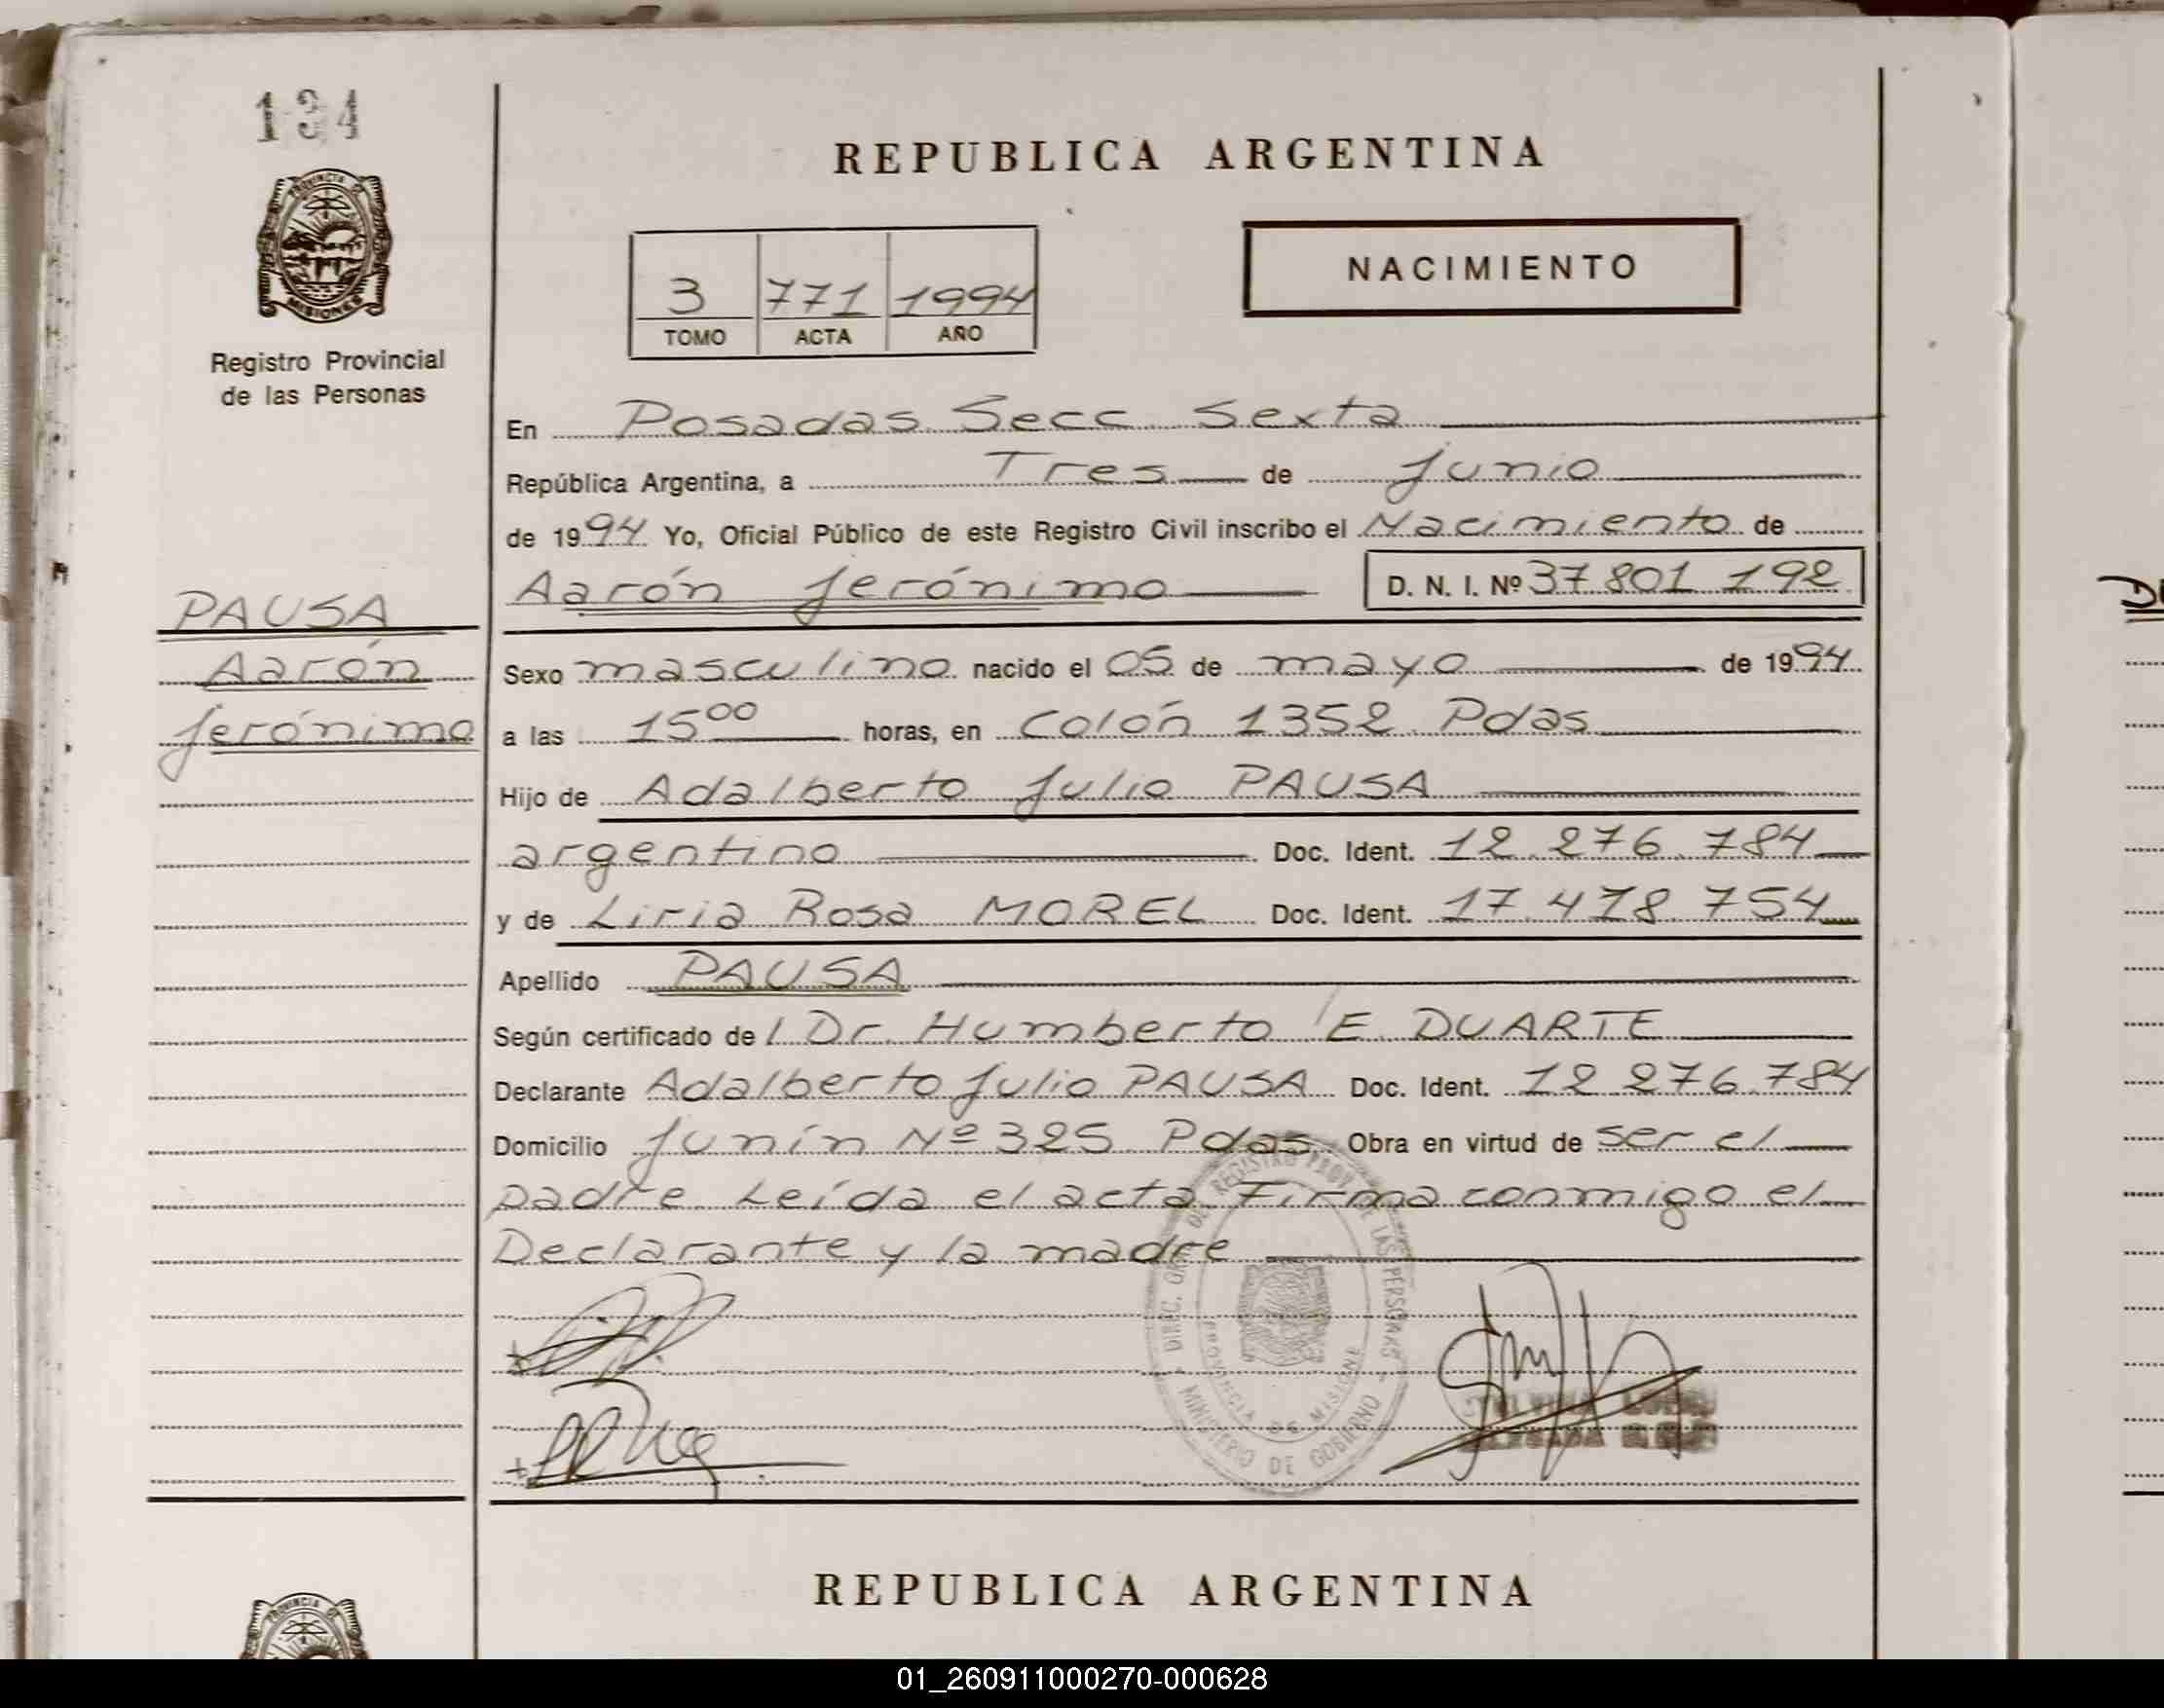 134
PROVINCIA DE
MISIONES
Registro Provincial
de las Personas
REPUBLICA ARGENTINA
3 771 1994
TOMO ACTA AÑO
NACIMIENTO
En Posadas Secc Sexta
República Argentina, a Tres de Junio
de 1994 Yo, Oficial Público de este Registro Civil inscribo el Nacimiento de
Aarón Jerónimo D. N. I. Nº 37.801.192
PAUSA
Aarón
Jerónimo
Sexo masculino nacido el 05 de mayo de 1994
a las 15⁰⁰ horas, en Colón 1352. Pdas
Hijo de Adalberto Julio PAUSA
argentino Doc. Ident. 12.276.784
y de Liria Rosa MOREL Doc. Ident. 17.478.754
Apellido PAUSA
Según certificado de l Dr. Humberto E. DUARTE
Declarante Adalberto Julio PAUSA Doc. Ident. 12.276.784
Domicilio Junín Nº 325. Pdas. Obra en virtud de ser el
padre. Leída el acta. Firma conmigo el
Declarante y la madre
DIREC. GRAL. DEL REGISTRO PROV. DE LAS PERSONAS
PROVINCIA DE MISIONES
MINISTERIO DE GOBIERNO
REPUBLICA ARGENTINA
PROVINCIA DE
01_260911000270-000628